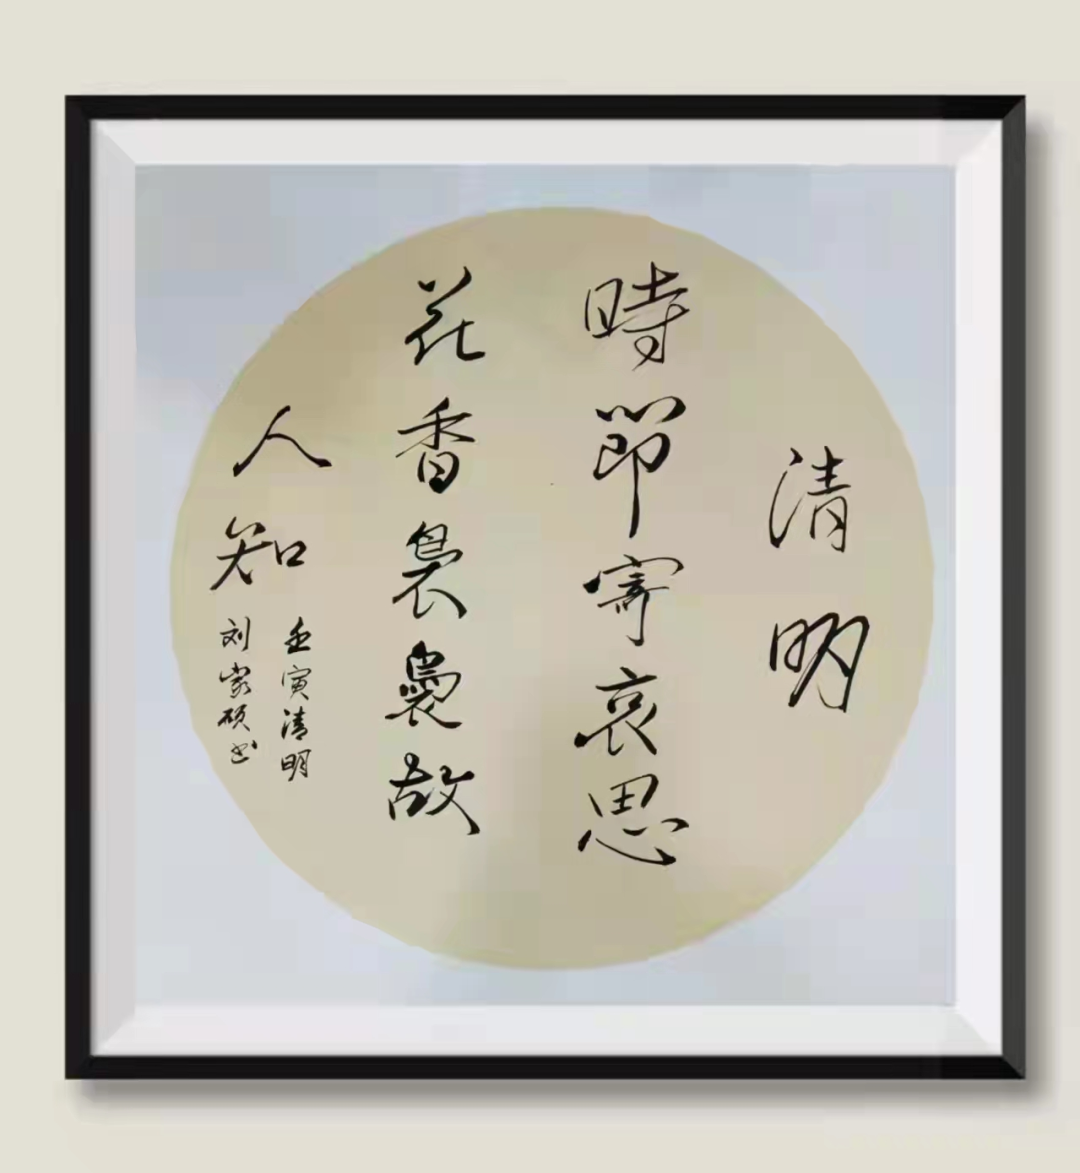 清明
時節寄哀思
花香裊裊故
人知
壬寅清明
刘家硕书